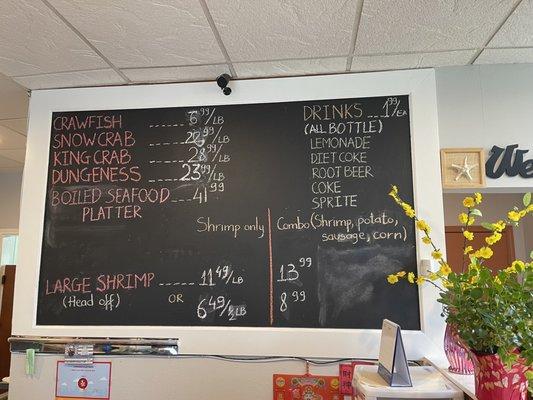 CRAWFISH ---- 6.99/LB
SNOWCRAB
KING CRAB
DUNGENESS ---- 23.99/LB
BOILED SEAFOOD PLATTER -- 41.99
DRINKS --- 1.99/EA
(ALL BOTTLE)
LEMONADE
DIET COKE
ROOT BEER
COKE
SPRITE
Shrimp only
Combo (Shrimp, potato,
sausage, corn)
LARGE SHRIMP ---- 11.49/LB
13.99
(Head off)
OR 6.49/½LB
8.99
We